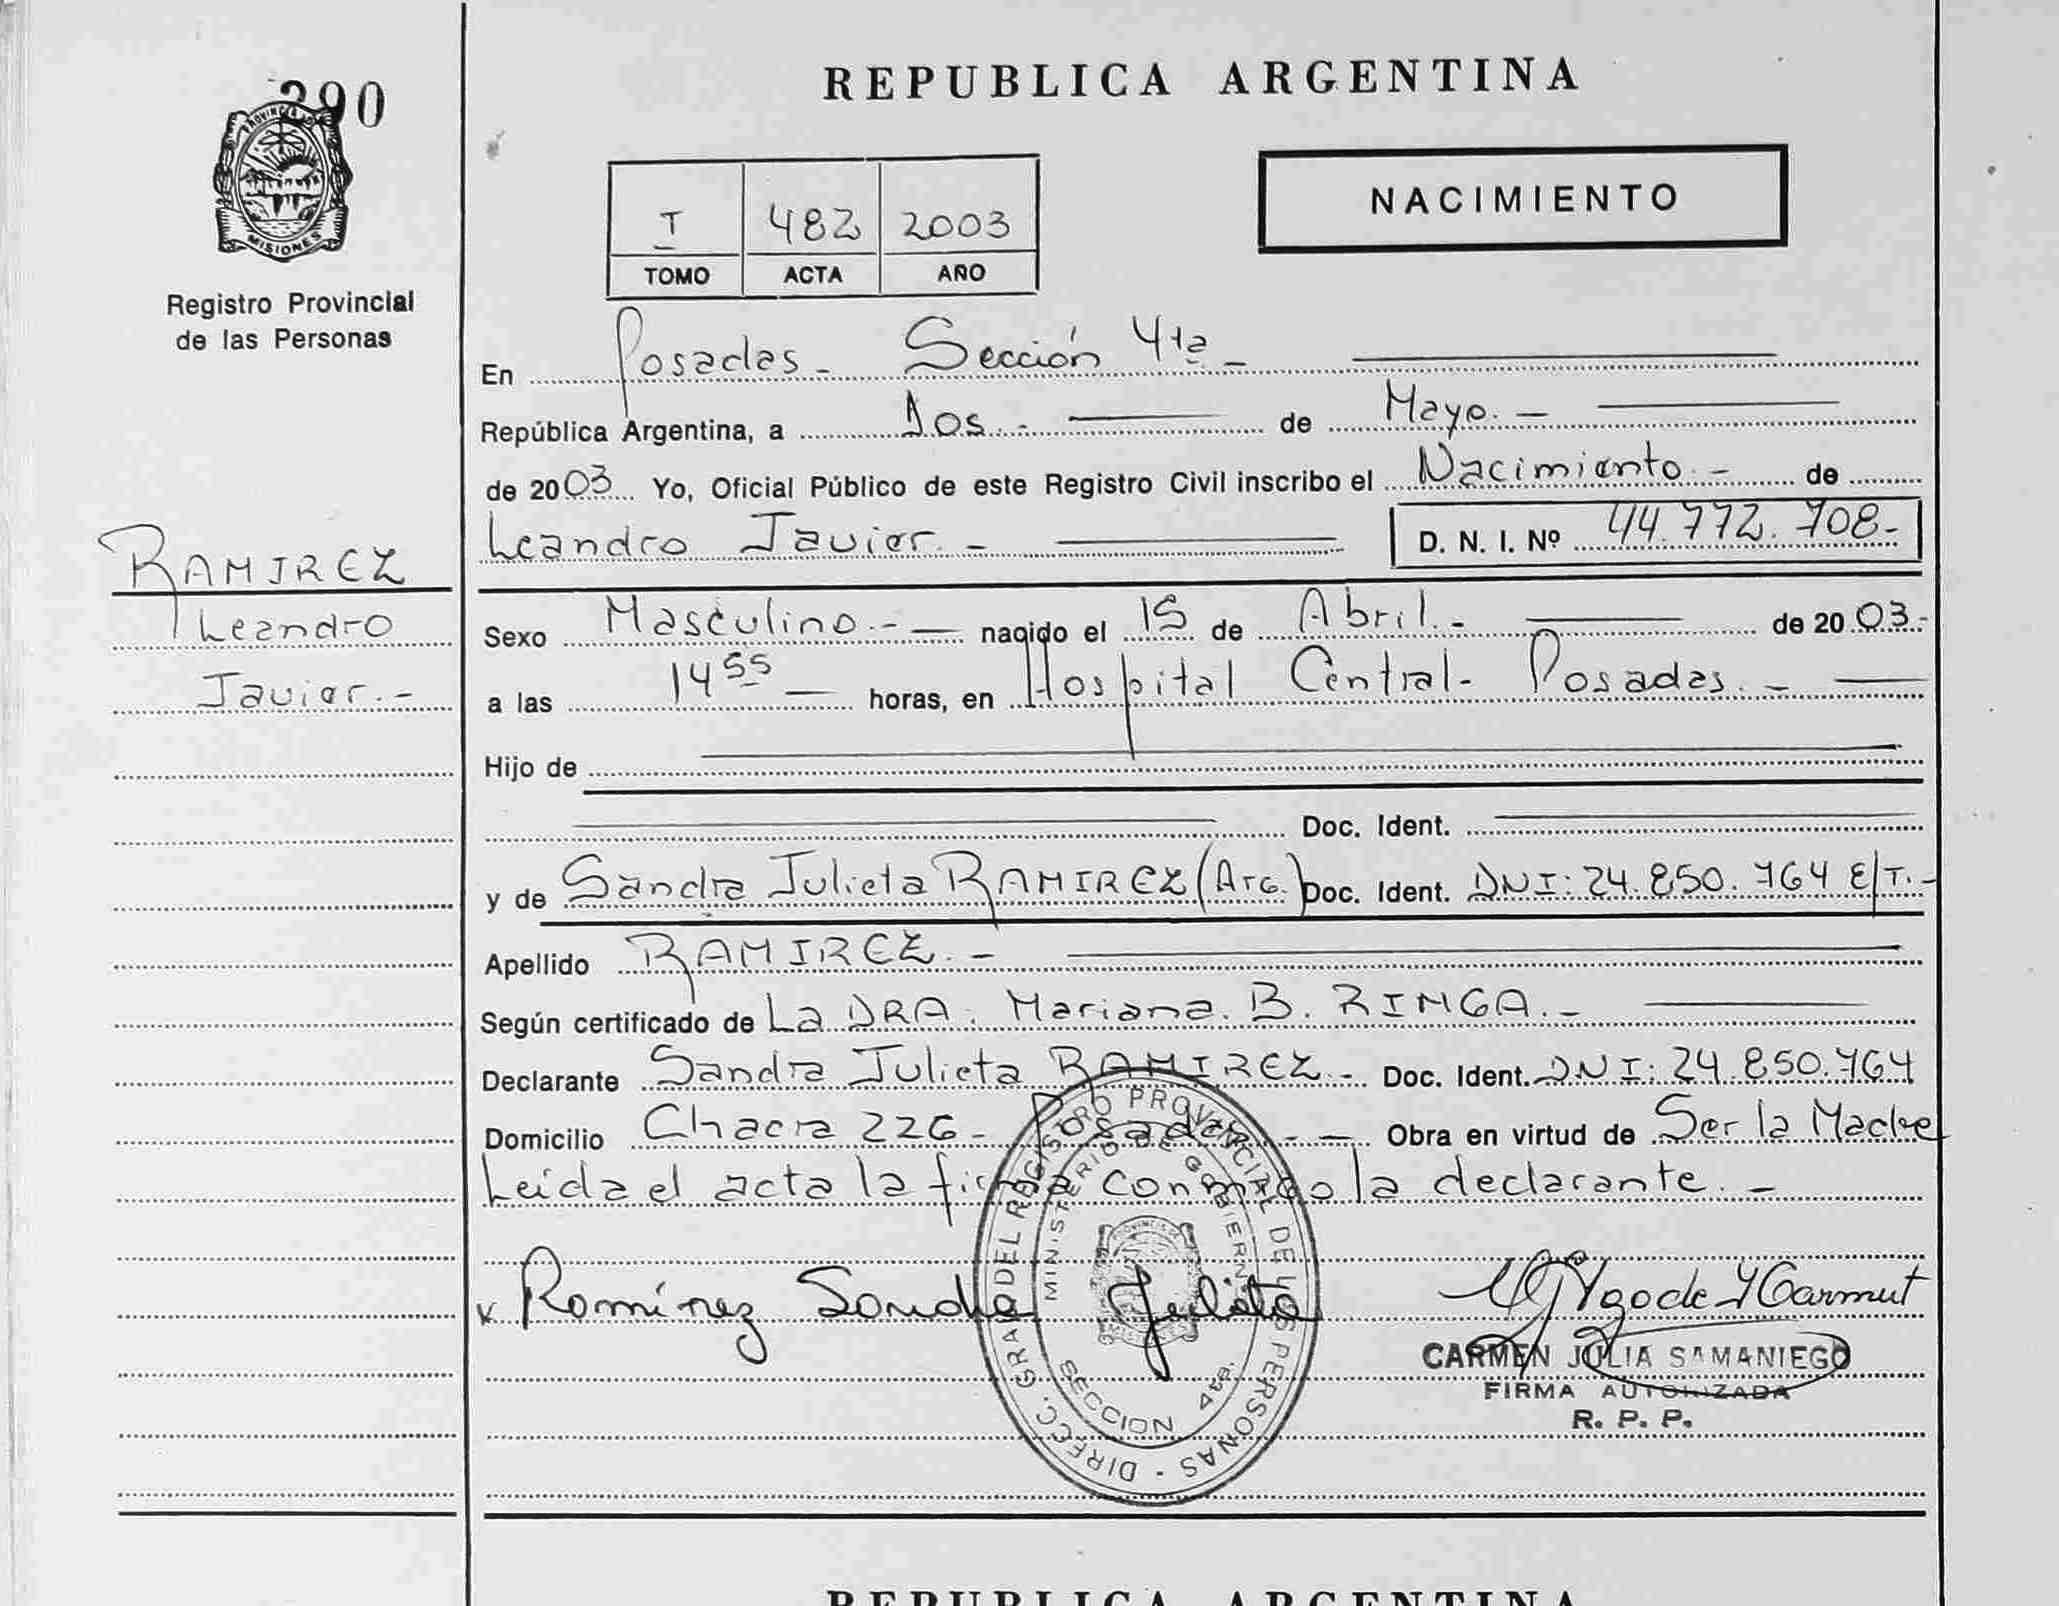 REPUBLICA ARGENTINA
290
PROVINCIA DE
MISIONES
Registro Provincial
de las Personas
I 482 2003
TOMO ACTA AÑO
NACIMIENTO
En Posadas - Sección 4ta -
República Argentina, a Dos.- de Mayo.-
de 2003. Yo, Oficial Público de este Registro Civil inscribo el Nacimiento.- de
Leandro Javier.- D. N. I. Nº 44.772.708-
RAMIREZ
Leandro
Javier.-
Sexo Masculino.- nacido el 15 de Abril.- de 2003.-
a las 14 55 horas, en Hospital Central- Posadas.-
Hijo de
Doc. Ident.
y de Sandra Julieta RAMIREZ (Arg.) Doc. Ident. DNI: 24.850.764 E/T.-
Apellido RAMIREZ.-
Según certificado de La DRA. Mariana. B. RINGA.-
Declarante Sandra Julieta RAMIREZ.- Doc. Ident. DNI: 24.850.764
Domicilio Chacra 226- Posadas.- Obra en virtud de Ser la Madre
Leida el acta la firma conmigo la declarante.-
Ramírez Sandra Julieta
DIREC. GRAL DEL REGISTRO PROVINCIAL DE LAS PERSONAS -
MINISTERIO DE GOBIERNO
SECCION 4ta.
CARMEN JULIA SAMANIEGO
FIRMA AUTORIZADA
R. P. P.
REPUBLICA ARGENTINA